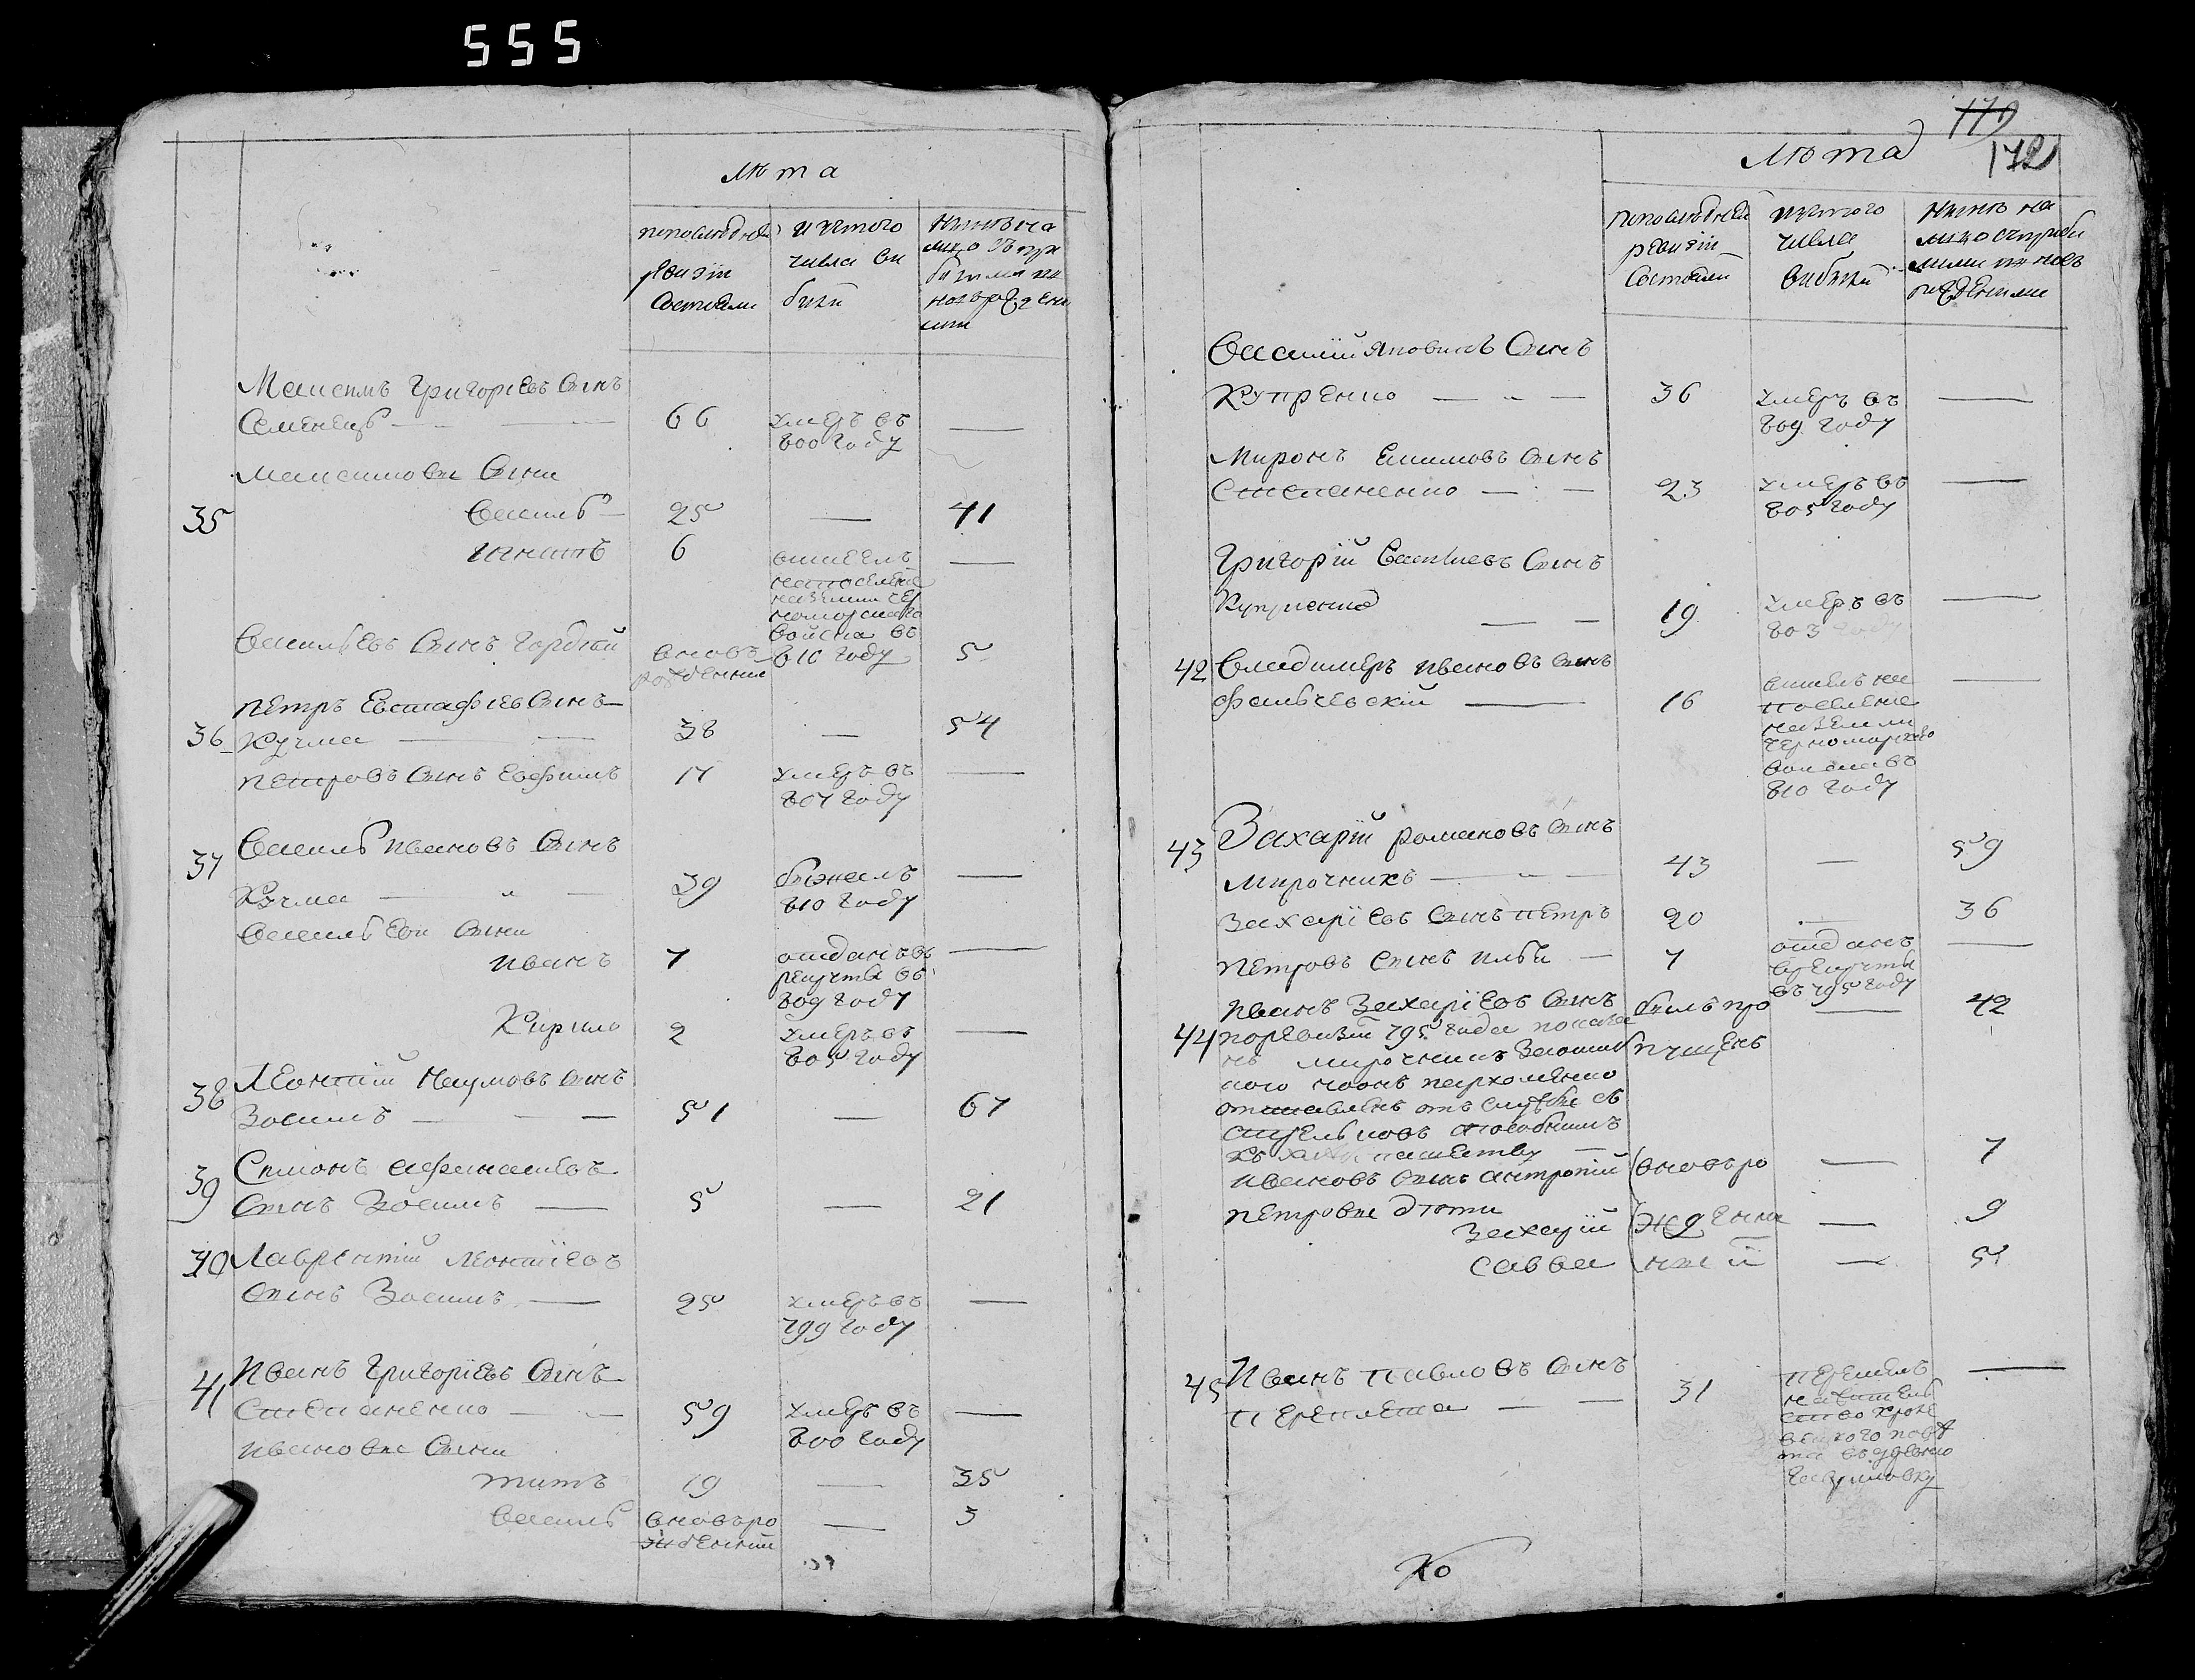 555
лѣта
попоследней
ревизіи
состояли
и изтого
числа вы
было
нынѣ на
лицо съ при
новорожден
ными
Максимъ Григоріевъ Сынъ
Семенецъ 66 умеръ въ —
800 году
Максимовы Сыни
35 Василь 25 — 41
Игнатъ 6 вишелъ —
на поселеніе
на земли чер
номорскаго
войска въ
810 году
Васильевъ Сынъ Гордѣй вновь 5
рожденни
Петръ Евстафіевъ Сынъ
36 Кучма 38 — 54
Петровъ Сынъ Евфимъ 17 умеръ въ —
807 году
37 Василь Ивановъ Сынъ
Кучма 39 бѣжалъ —
810 году
Васильеви Сыни
Иванъ 7 отданъ въ —
рекруты въ
809 году
Кирило 2 умеръ въ —
805 году
38 Леонтій Наумовъ Сынъ
Зосимъ 51 — 67
39 Симонъ Афанасіевъ
Сынъ Зосимъ 5 — 21
40 Лаврентій Леонтіевъ
Сынъ Зосимъ 25 умеръ въ —
799 году
41 Иванъ Григоріевъ Сынъ
Степаненко 59 умеръ въ —
800 году
Ивановы Сыни
Титъ 19 — 35
Василь вновьро — 3
жденний
179
172
лѣта
попоследней
ревизіи
состояли
изтого
числа
вибыли
нынѣ на
лицо съприбы
лими и новъ
рожденими
Василій Яковлевъ Сынъ
Купренко 36 умеръ въ —
809 году
Миронъ Екимовъ Сынъ
Степаненко 23 умеръ въ —
805 году
Григорій Василиевъ Сынъ
Купренко 19 умеръ въ —
803 году
42 Владимеръ Ивановъ Сынъ
Фальчевскій 16 вишелъ на —
поселеніе
на земли
черноморскаго
войска въ
810 году
43 Захарій Романовъ Сынъ
Мирочникъ 43 — 59
Захаріевъ Сынъ Петръ 20 — 36
Петровъ Сынъ Илья 7 отданъ —
врекруты
въ 795 году
Иванъ Захаріевъ Сынъ билъ про — 42
44 поревизіи 795 года показа пущенъ
нъ Мирочникъ
Пархоменко
отъ службы съ
способнимъ
къ
Ивановъ Сынъ Антропій вновьро — 7
Петровы дѣти
Захарій жденни — 9
Савва ній — 5
45 Иванъ Павловъ Сынъ
Переплета 31 перешелъ —
на житель
ство
повѣ
та въ деревню
Гавриловку
Ко